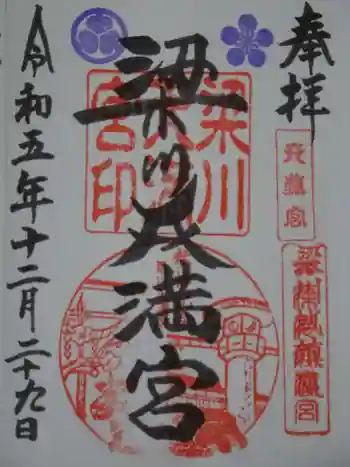 奉拝
梁川天満宮
梁川
宮印
天満宮
令和五年十二月二十九日